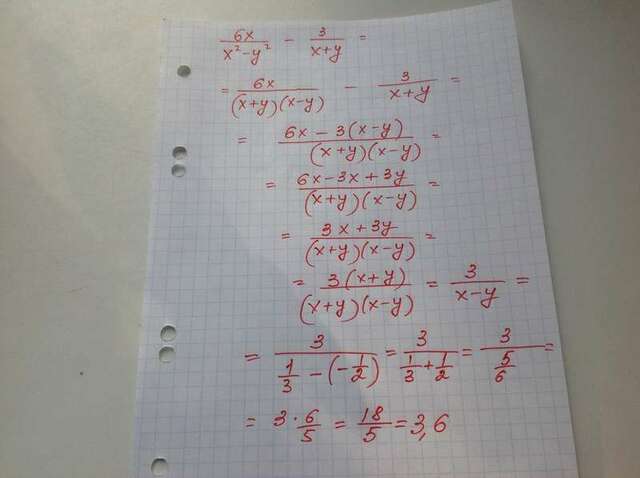 6x/(x²-y²) - 3/(x+y) =
= 6x/((x+y)(x-y)) - 3/(x+y) =
= (6x-3(x-y))/((x+y)(x-y)) =
= (6x-3x+3y)/((x+y)(x-y)) =
= (3x+3y)/((x+y)(x-y)) =
= 3(x+y)/((x+y)(x-y)) = 3/(x-y) =
= 3/(1/3-(-1/2)) = 3/(1/3+1/2) = 3/(5/6) =
= 3·6/5 = 18/5 = 3,6